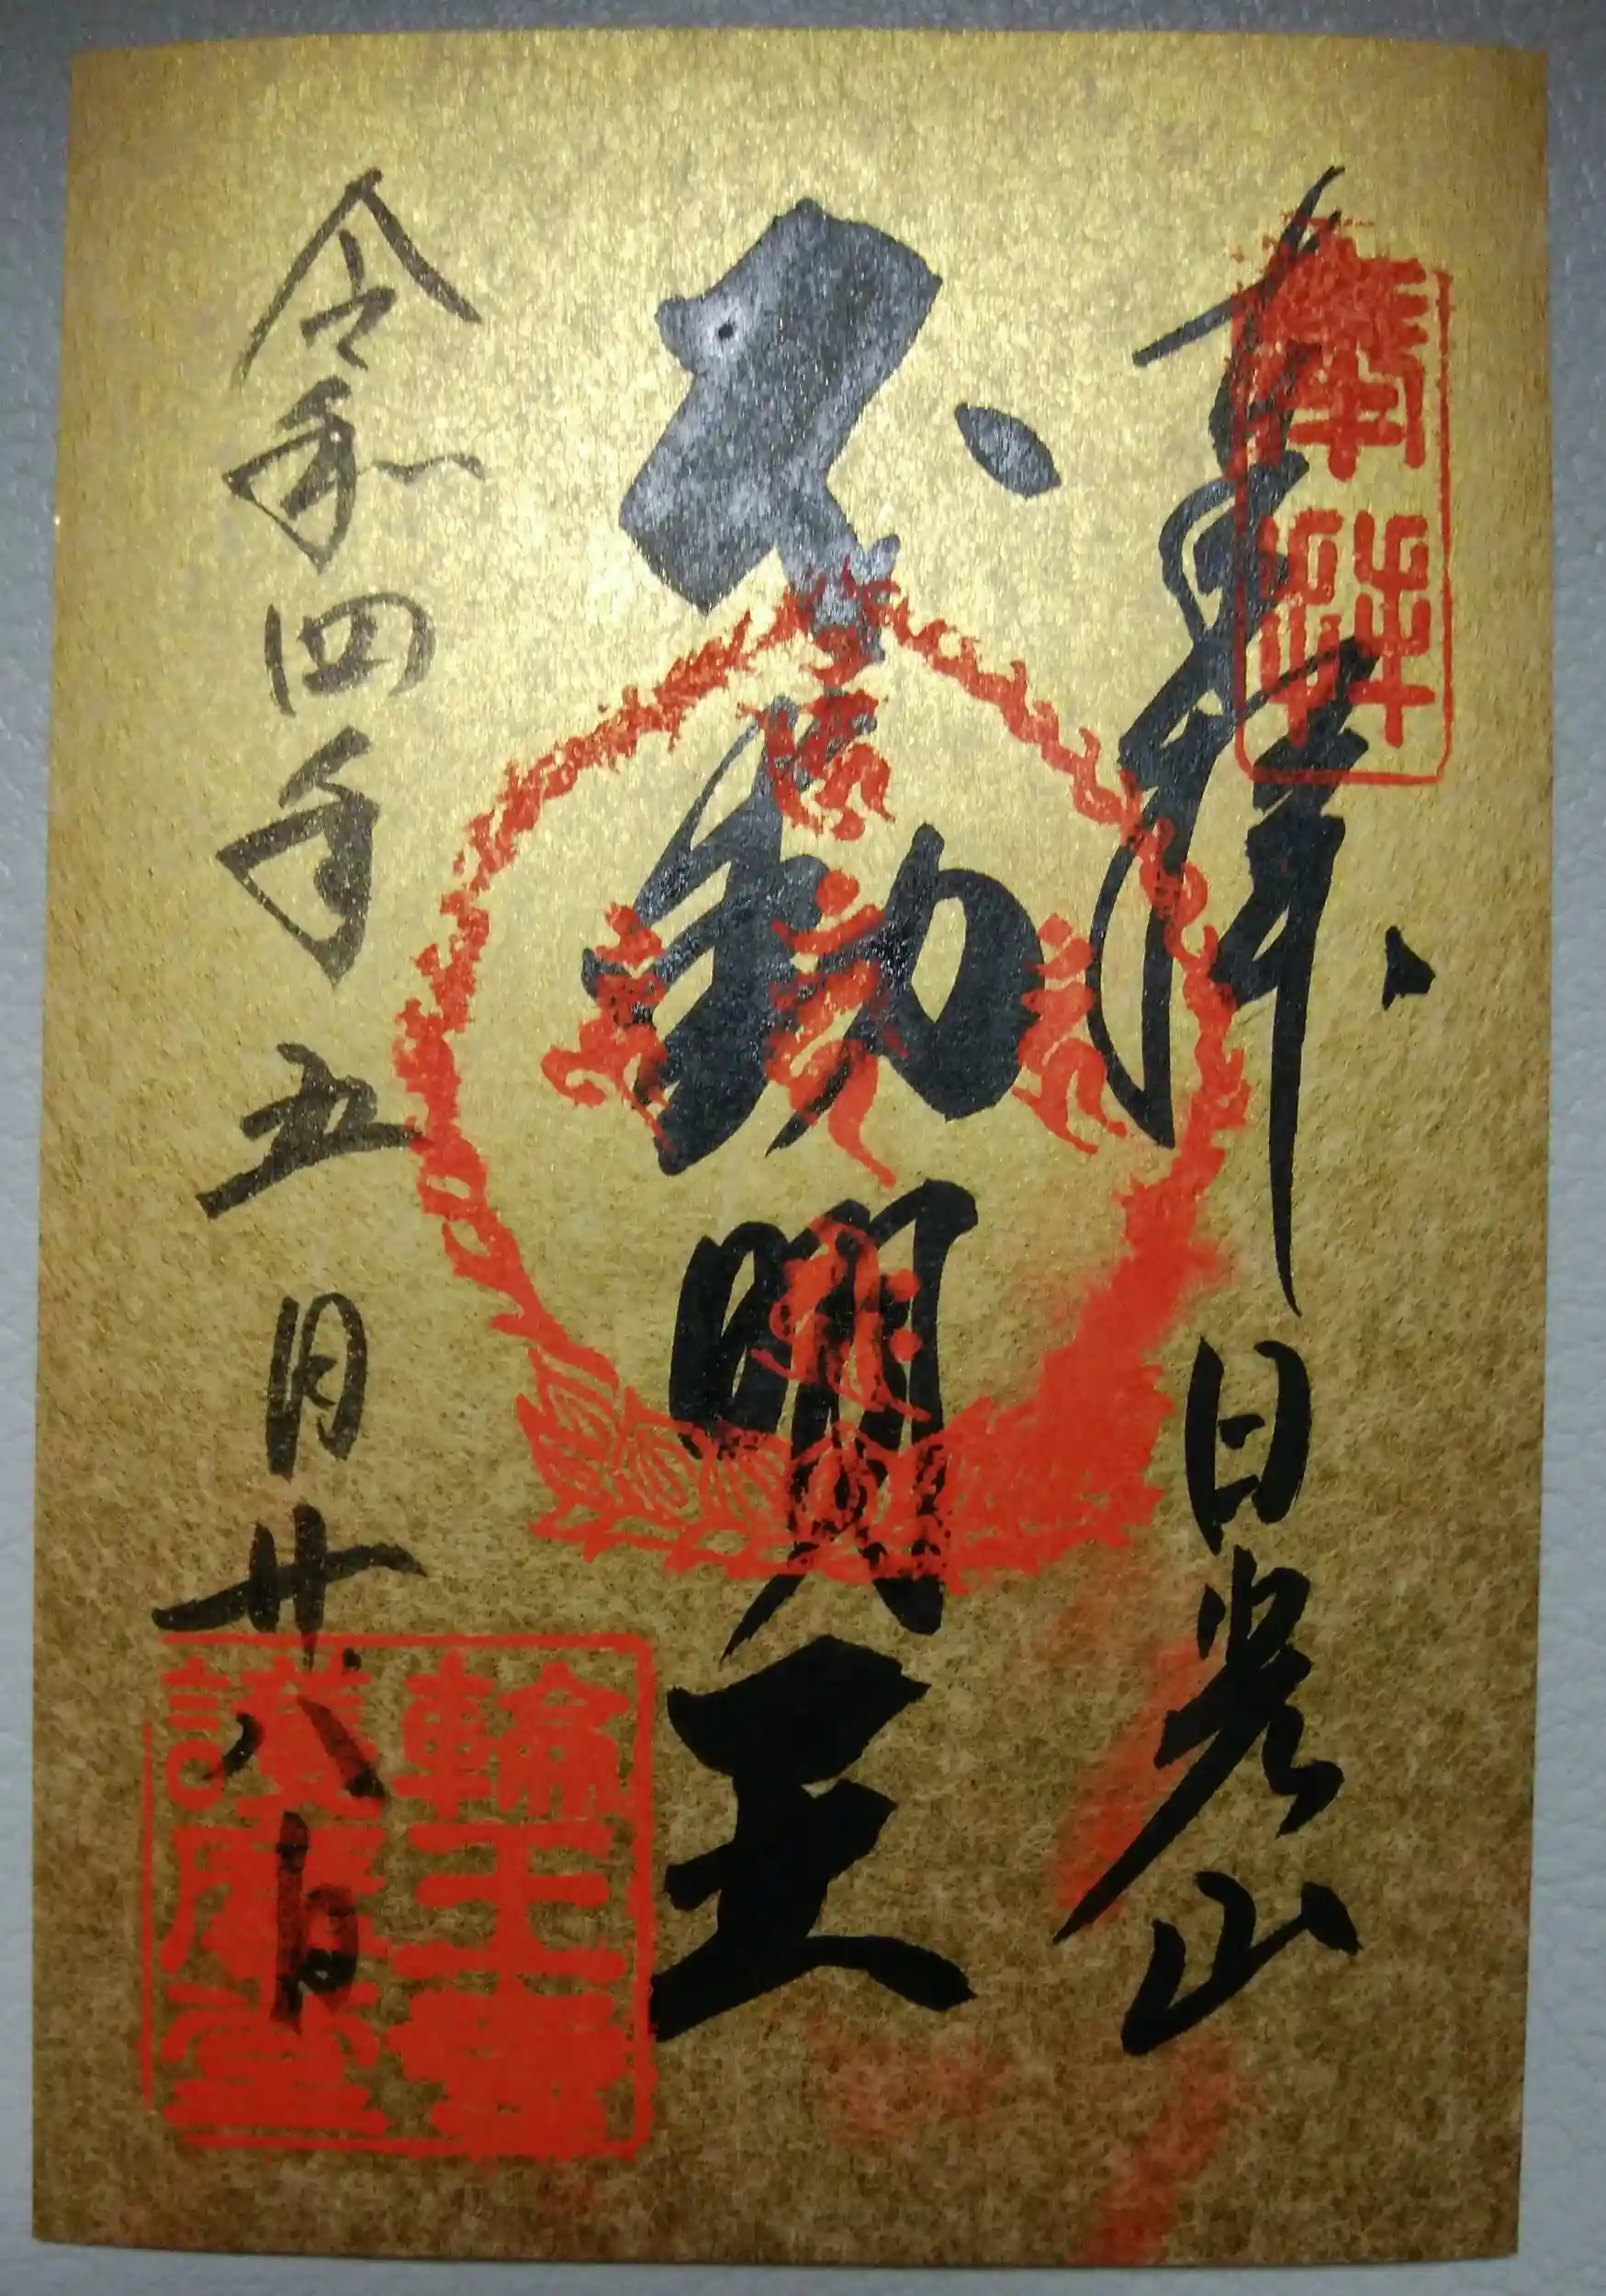 奉拝
日光山
奉拝
不動明王
令和四年五月廿八日
輪王寺
護摩堂